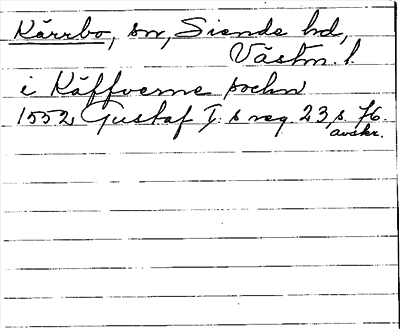 Kärrbo, sn, Siende hd,
Västm. l.
i Käffverne sochn
1552 Gustaf I:s reg. 23, s. 76.
avskr.